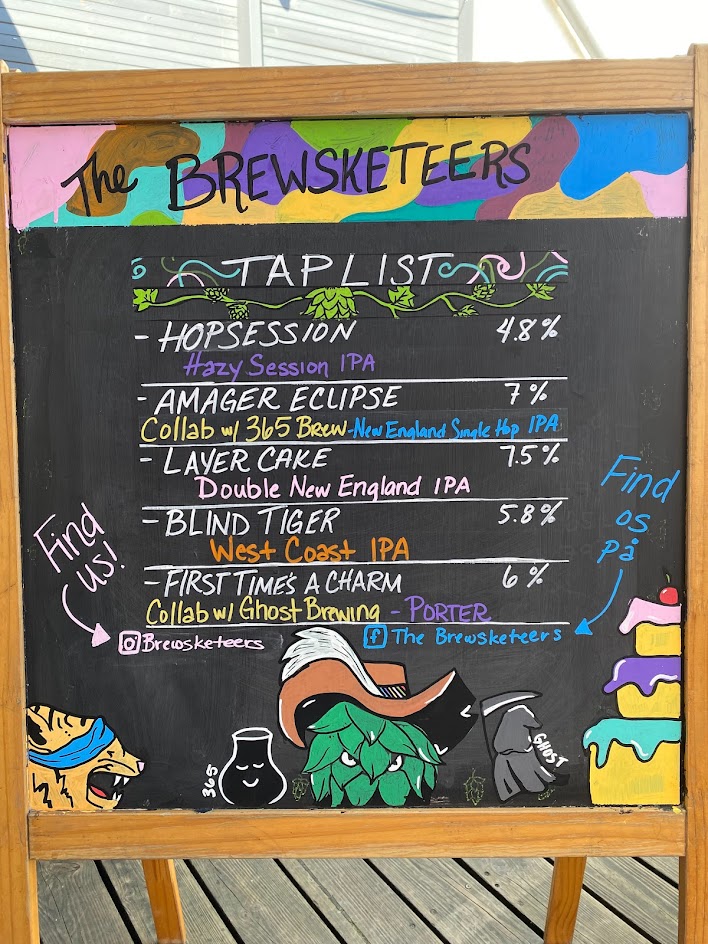 The BREWSKETEERS
TAP LIST
- HOPSESSION 4.8%
Hazy Session IPA
- AMAGER ECLIPSE 7%
Collab w/ 365 Brew - New England Single Hop IPA
- LAYER CAKE 7.5%
Double New England IPA
- BLIND TIGER 5.8%
West Coast IPA
- FIRST TIME'S A CHARM 6%
Collab w/ Ghost Brewing - PORTER
Find
us!
Brewsketeers
Find
os
på
f The Brewsketeers
365
GHOST